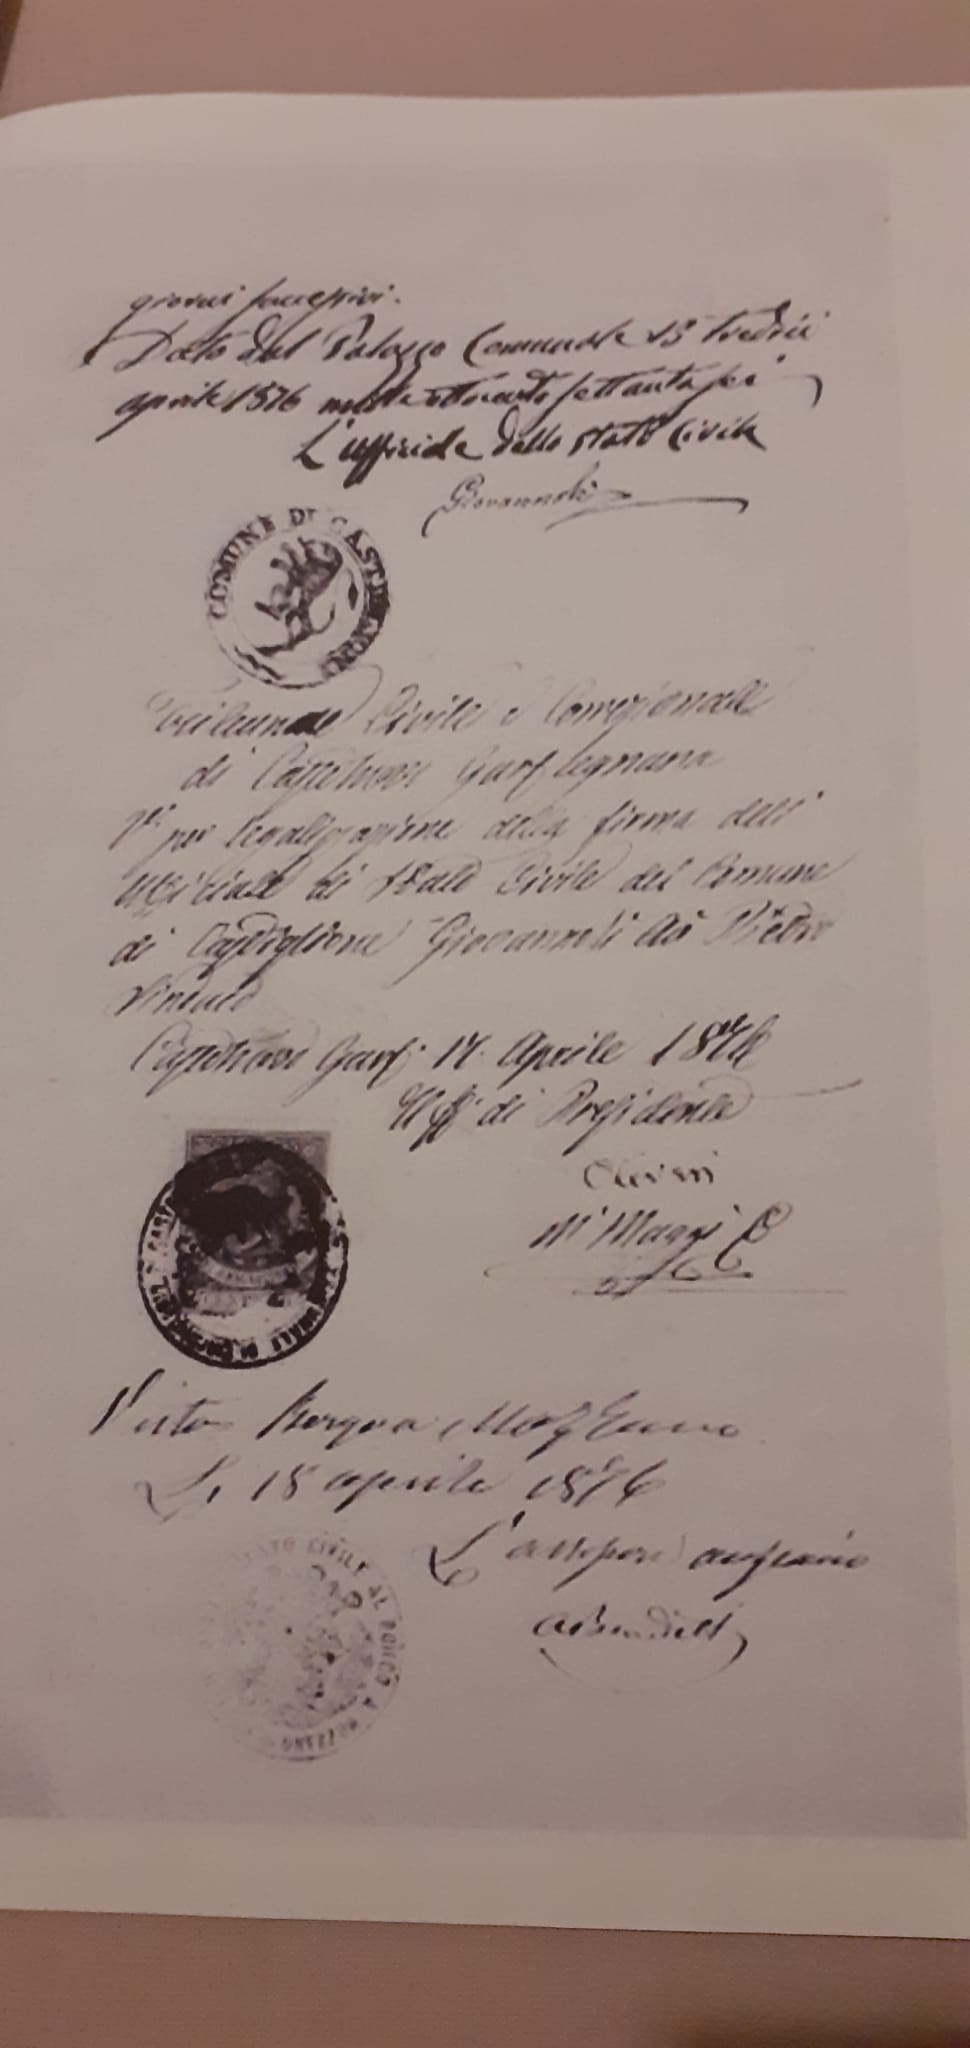 giorni successivi.
Dato dal Palazzo Comunale 13 tredici
aprile 1876 mille ottocento settanta sei
L'uffiziale dello stato Civile
Giovannoli
COMUNE DI CASTIGLIONE
Tribunale Civile e Correzionale
di Castelnovo Garfagnana
Vº per legalizzazione della firma dell'
Uffiziale di Stato Civile del Comune
di Castiglione Giovannoli Pietro
Sindaco
Castelnovo Garf. 17. Aprile 1876
Il ff. di Presidente
Mazzi
Visto Borgo a Mozzano
Li 18 aprile 1876
L'assessore anziano
STATO CIVILE AL BORGO A MOZZANO